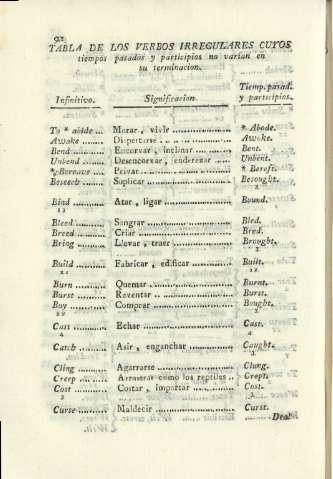 92
TABLA DE LOS VERBOS IRREGULARES CUYOS
tiempos pasados y participios no varían en
su terminacion.
Infinitivo. Significacion. Tiemp. pasad. y participios.
To * abide ... Morar, vivir ... * Abode.
Awake ... Dispertarse ... Awoke.
Bend ... Encorvar, inclinar ... Bent.
Unbend ... Desencorvar, enderezar ... Unbent.
* Bereave ... Privar ... * Bereft.
Beseech ... Suplicar ... Besought.
2
Bind ... Atar, ligar ... Bound.
Bleed ... Sangrar ... Bled.
Breed ... Criar ... Bred.
Bring ... Llevar, traer ... Brought.
2
Build ... Fabricar, edificar ... Built.
Burn ... Quemar ... Burnt.
Burst ... Reventar ... Burst.
Buy ... Comprar ... Bought.
22 2
Cast ... Echar ... Cast.
4 4
Catch ... Asir, enganchar ... Caught.
2
Cling ... Agarrarse ... Clung.
Creep ... Arrastrar como los reptiles .. Crept.
Cost ... Costar, importar ... Cost.
2 2
Curse ... Maldecir ... Curst.
Deal